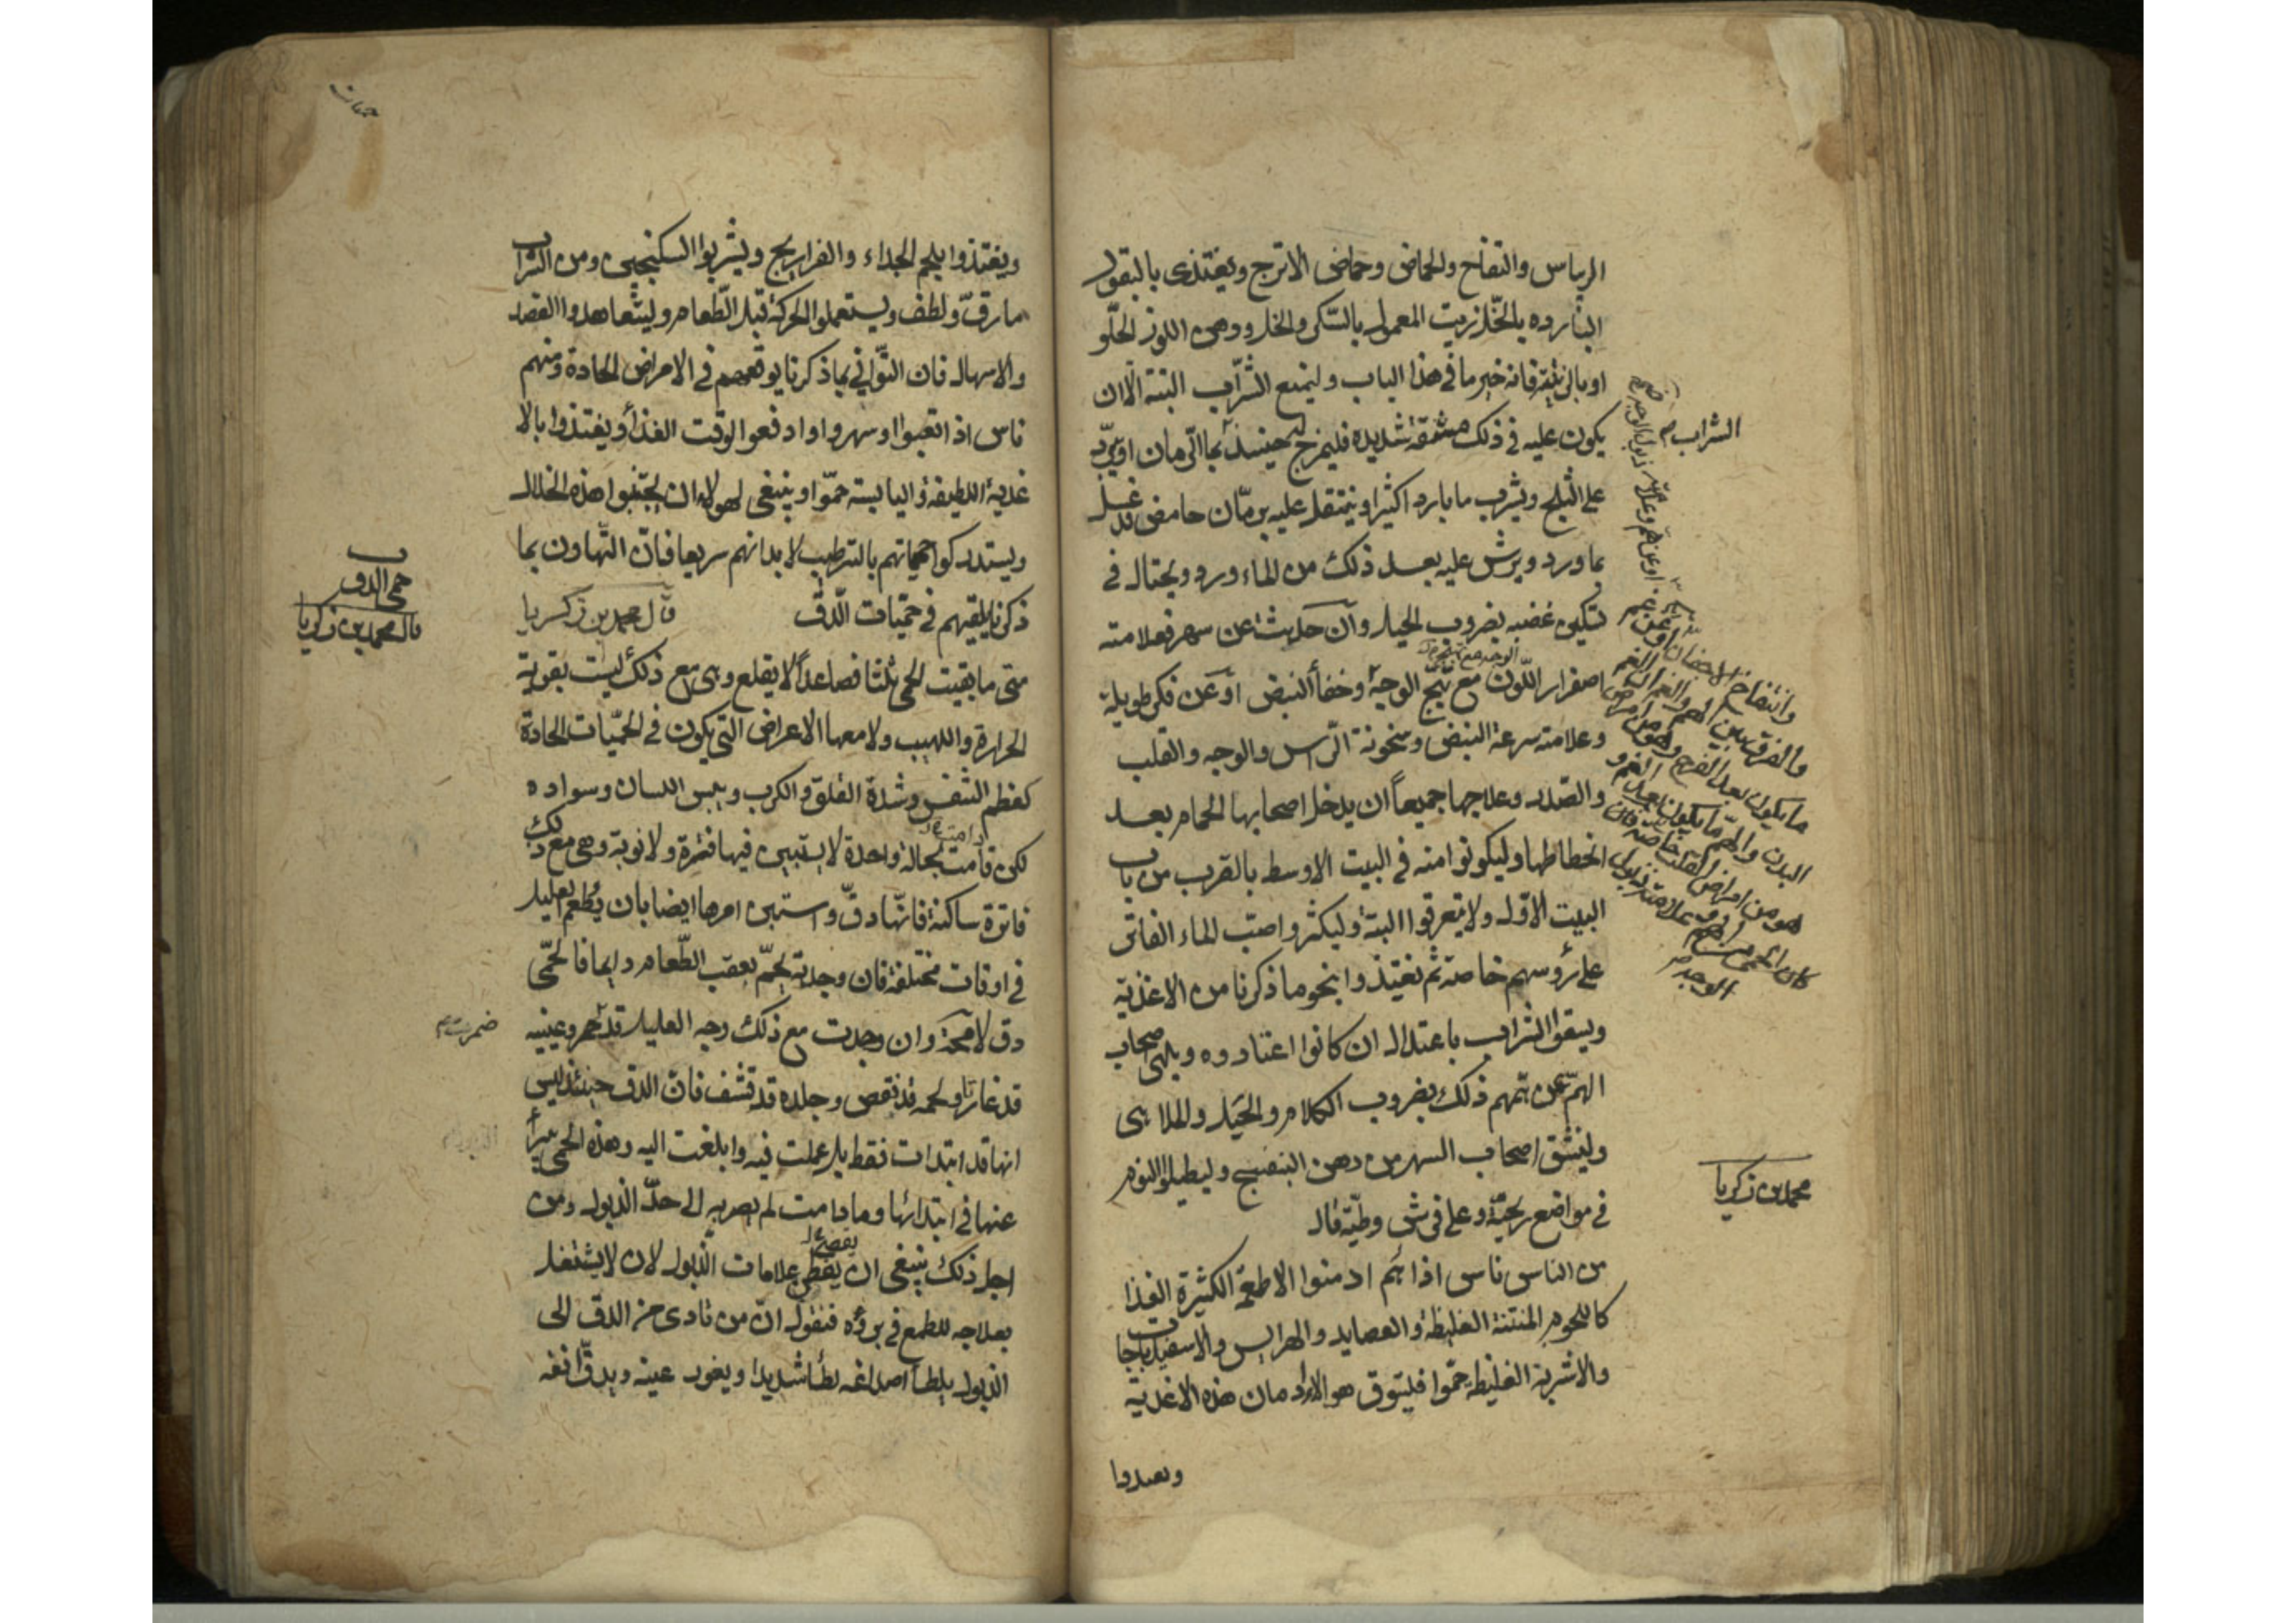 الريباس والتفاح والحماض وحماض الاترج ويغتذى بالبقول
الباردة بالخل زيت المعمول بالسكر والخل ودهن اللوز الحلو
او بالزبيبة فانه خير ما في هذا الباب وليمنع الشراب البتة الا ان
يكون عليه في ذلك مشقة شديدة فليمزج له حينئذ بما الرمان او يبرد
على الثلج ويشرب ما باردا كثيرا ويتنقل عليه برمان حامض قد غسل
بماورد ويرش عليه بعد ذلك من الماء ورد ويحتال في
تسكين غضبه بضروب الحيل وان حدثت عن سهر فعلامته
اصفرار اللون مع تهبج الوجه وخفأ النبض او عن فكر طويلة
وعلامته سرعة النبض وسخونة الراس والوجه والقلب
والصدر وعلاجها جميعا ان يدخل اصحابها الحمام بعد
انحطاطها وليكونوا منه في البيت الاوسط بالقرب من باب
البيت الاول ولا يتعرقوا البتة وليكثروا صب الماء الفاتر
على رؤسهم خاصة ثم يغتذوا بنحو ما ذكرنا من الاغذية
ويسقوا الشراب باعتدال ان كانوا اعتادوه ويلهى اصحاب
الهم عن همهم ذلك بضروب الكلام والحيل والملاهى
ولينشق اصحاب السهر من دهن البنفسج وليطيلوا النوم
في مواضع ريحية وعلى فرش وطية قال
من الناس ناس اذا هم ادمنوا الاطعمة الكثيرة الغذا
كاللحوم المنتنة الغليظة والعصايد والهرايس والاسفيدباجات
والاشربة الغليظة حموا فليتوق هولاء ادمان هذه الاغذية
وبعدوا
الشراب
وانتفاخ الاجفان او عن غم
والفرق بين الهم والغم ان الغم
محمد بن زكريا
حميات
ويغتذوا بلحم الجداء والفراريج ويشربوا السكنجبين ومن الشراب
ما رق ولطف ويستعملوا الحركة قبل الطعام وليتعاهدوا الفصد
والاسهال فان التوانى بما ذكرنا يوقعهم في الامراض الحادة ومنهم
ناس اذا تعبوا او سهروا او ادفعوا لوقت الغذأ ويغتذوا بالا
غدية اللطيفة واليابسة حموا وينبغى لهولاء ان يجتنبوا هذه الخلال
ويستدركوا حمياتهم بالترطيب لابدانهم سريعا فان التهاون بما
ذكرنا يلقيهم في حميات الدق قال محمد بن زكريا
متى ما بقيت الحمى ثلثا فصاعدا لا يقلع وهى مع ذلك ليست بقوية
الحرارة واللهيب ولا معها الاعراض التى يكون في الحميات الحادة
كعظم النفس وشدة القلق والكرب ويبس اللسان وسواده
لكن قامت بحالة واحدة لا يستبين فيها فترة ولا نوبة وهى مع ذلك
فاترة ساكنة فانها دق واستبن امرها ايضا بان يطعم العليل
في اوقات مختلفة فان وجدته يحم بعقب الطعام دايما فالحمى
دق لا محة وان وجدت مع ذلك وجه العليل قد ضمر وعينيه
قد غارتا ولحمه قد نقص وجلده قد قشف فان الدق حينئذ ليس
انها قد ابتدات فقط بل عملت فيه وابلغت اليه وهذه الحمى يبرأ
عنها في ابتدائها وما دامت لم يصر به الى حد الذبول ومن
اجل ذلك ينبغى ان يعطى علامات الذبول لان لا يشتغل
بعلاجه للطمع في برؤه فنقول ان من تادى من الدق الى
الذبول يلطأ اصداغه لطأ شديدا ويغور عينه ويدق انفه
حمى الدق
قال محمد بن زكريا
ضمرت